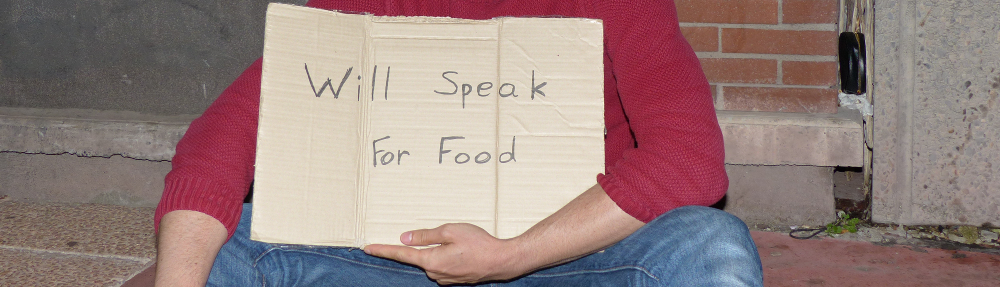 Will Speak
For Food